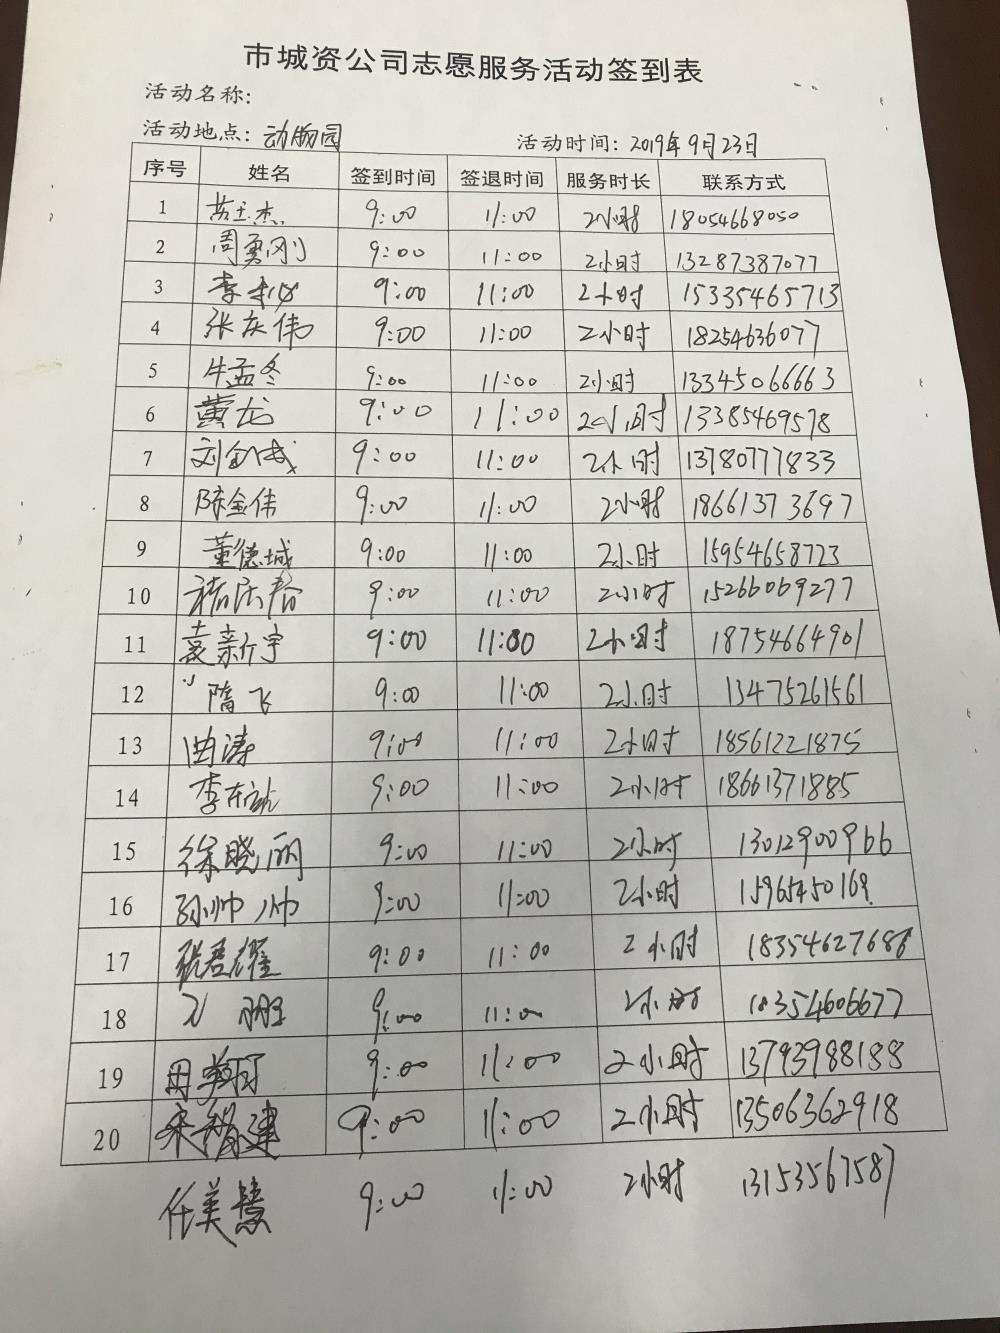 市城资公司志愿服务活动签到表
活动名称:
活动地点: 动物园 活动时间: 2019年9月23日
序号 姓名 签到时间 签退时间 服务时长 联系方式
1 9:00 11:00 2小时 18054668050
2 周勇刚 9:00 11:00 2小时 13287387077
3 李 9:00 11:00 2小时 15335465713
4 张庆伟 9:00 11:00 2小时 18254636077
5 牛孟冬 9:00 11:00 2小时 13345066663
6 黄龙 9:00 11:00 2小时 13385469578
7 刘金城 9:00 11:00 2小时 13780777833
8 陈金伟 9:00 11:00 2小时 18661373697
9 董德城 9:00 11:00 2小时 15954658723
10 9:00 11:00 2小时 15266069277
11 袁新宇 9:00 11:00 2小时 18754664901
12 隋飞 9:00 11:00 2小时 13475261561
13 曲涛 9:00 11:00 2小时 18561221875
14 李东 9:00 11:00 2小时 18661371885
15 徐晓丽 9:00 11:00 2小时 13012900966
16 孙帅帅 9:00 11:00 2小时 15965450169
17 张君耀 9:00 11:00 2小时 18354627686
18 9:00 11:00 2小时 18354606677
19 9:00 11:00 2小时 13793988188
20 9:00 11:00 2小时 13506362918
任美慧 9:00 11:00 2小时 13153567587